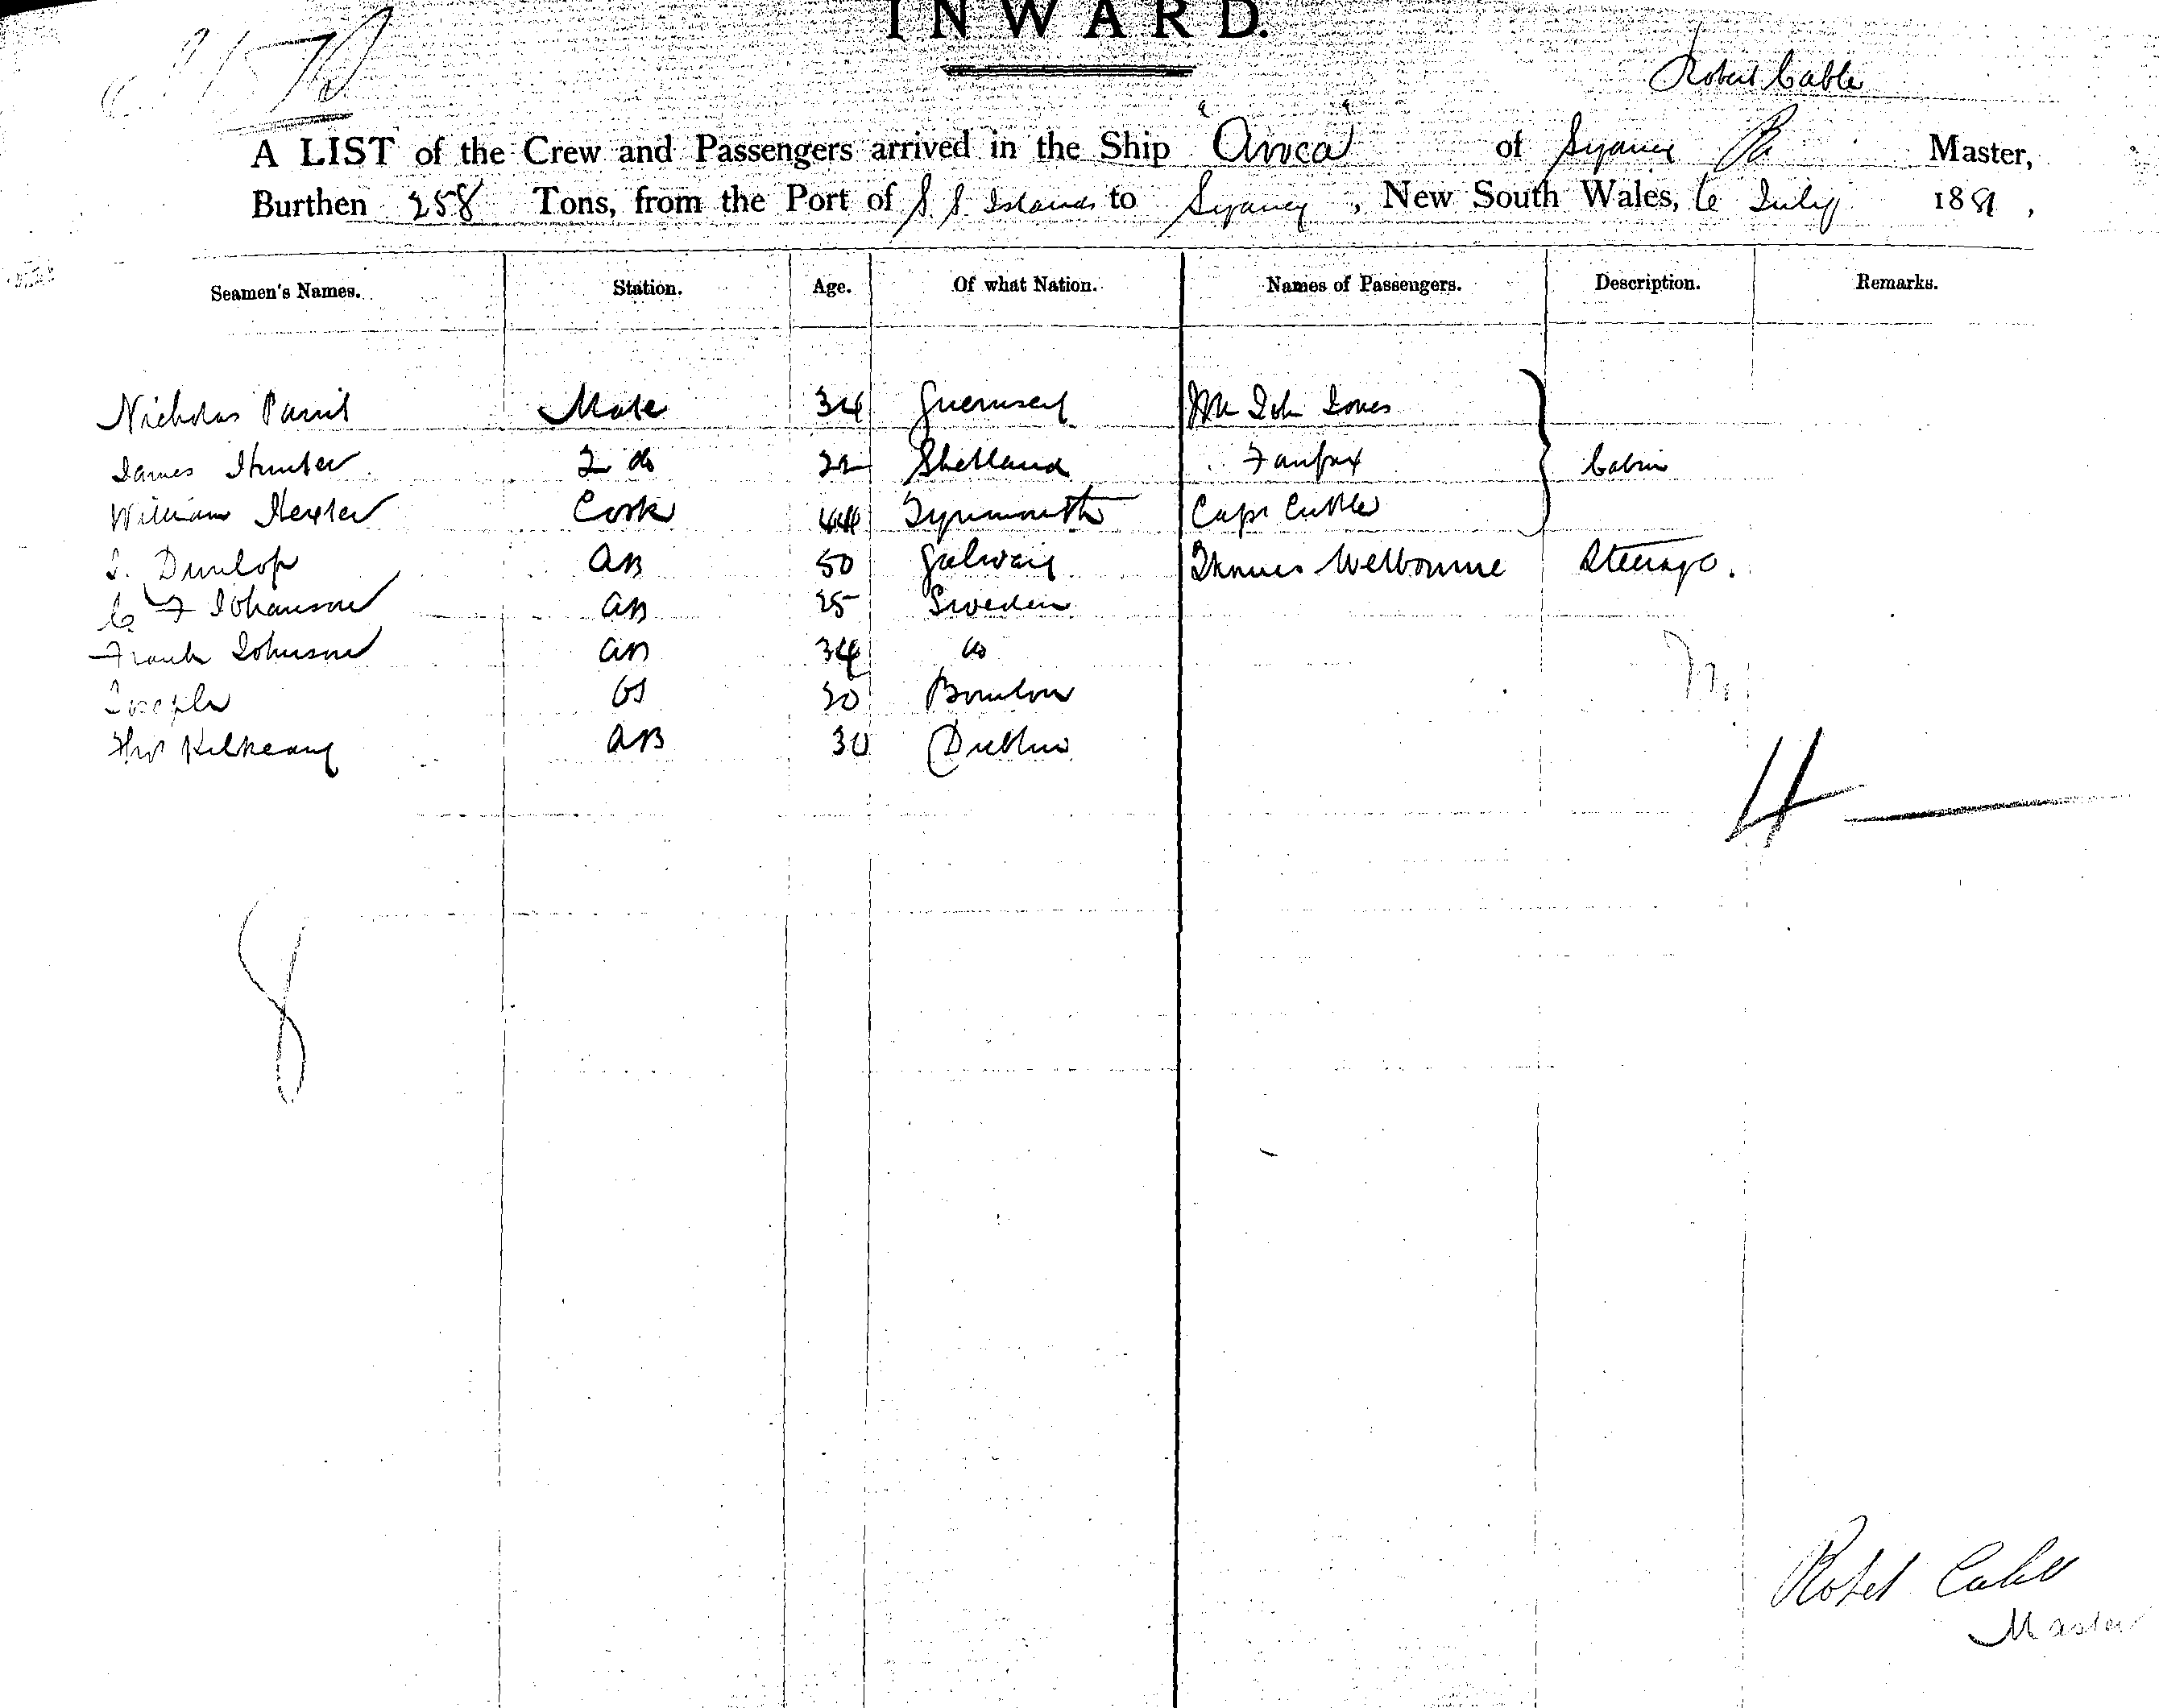 INWARD.
Robert Cable
A LIST of the Crew and Passengers arrived in the Ship "Anica" of Sydney Master,
Burthen 258 Tons, from the Port of S S Islands to Sydney, New South Wales, 6 July 1881,
Seamen's Names. Station. Age. Of what Nation. Names of Passengers. Description. Remarks.
Nicholas Mate 34 Guernsey Mr Joh Jones
James Hunter 2 do 22 Shetland Fairfax Cabin
William Cook 44 Tynemouth Capt
J. Dunlop AB 50 Galway Thomas Welbourne Steerage.
C F Johanson AB 25 Sweden
Frank Johnson AB 34 do
Joseph OS 20 Bourbon
Kilkeany AB 30 Dublin
4
8
Robert Cable
Master